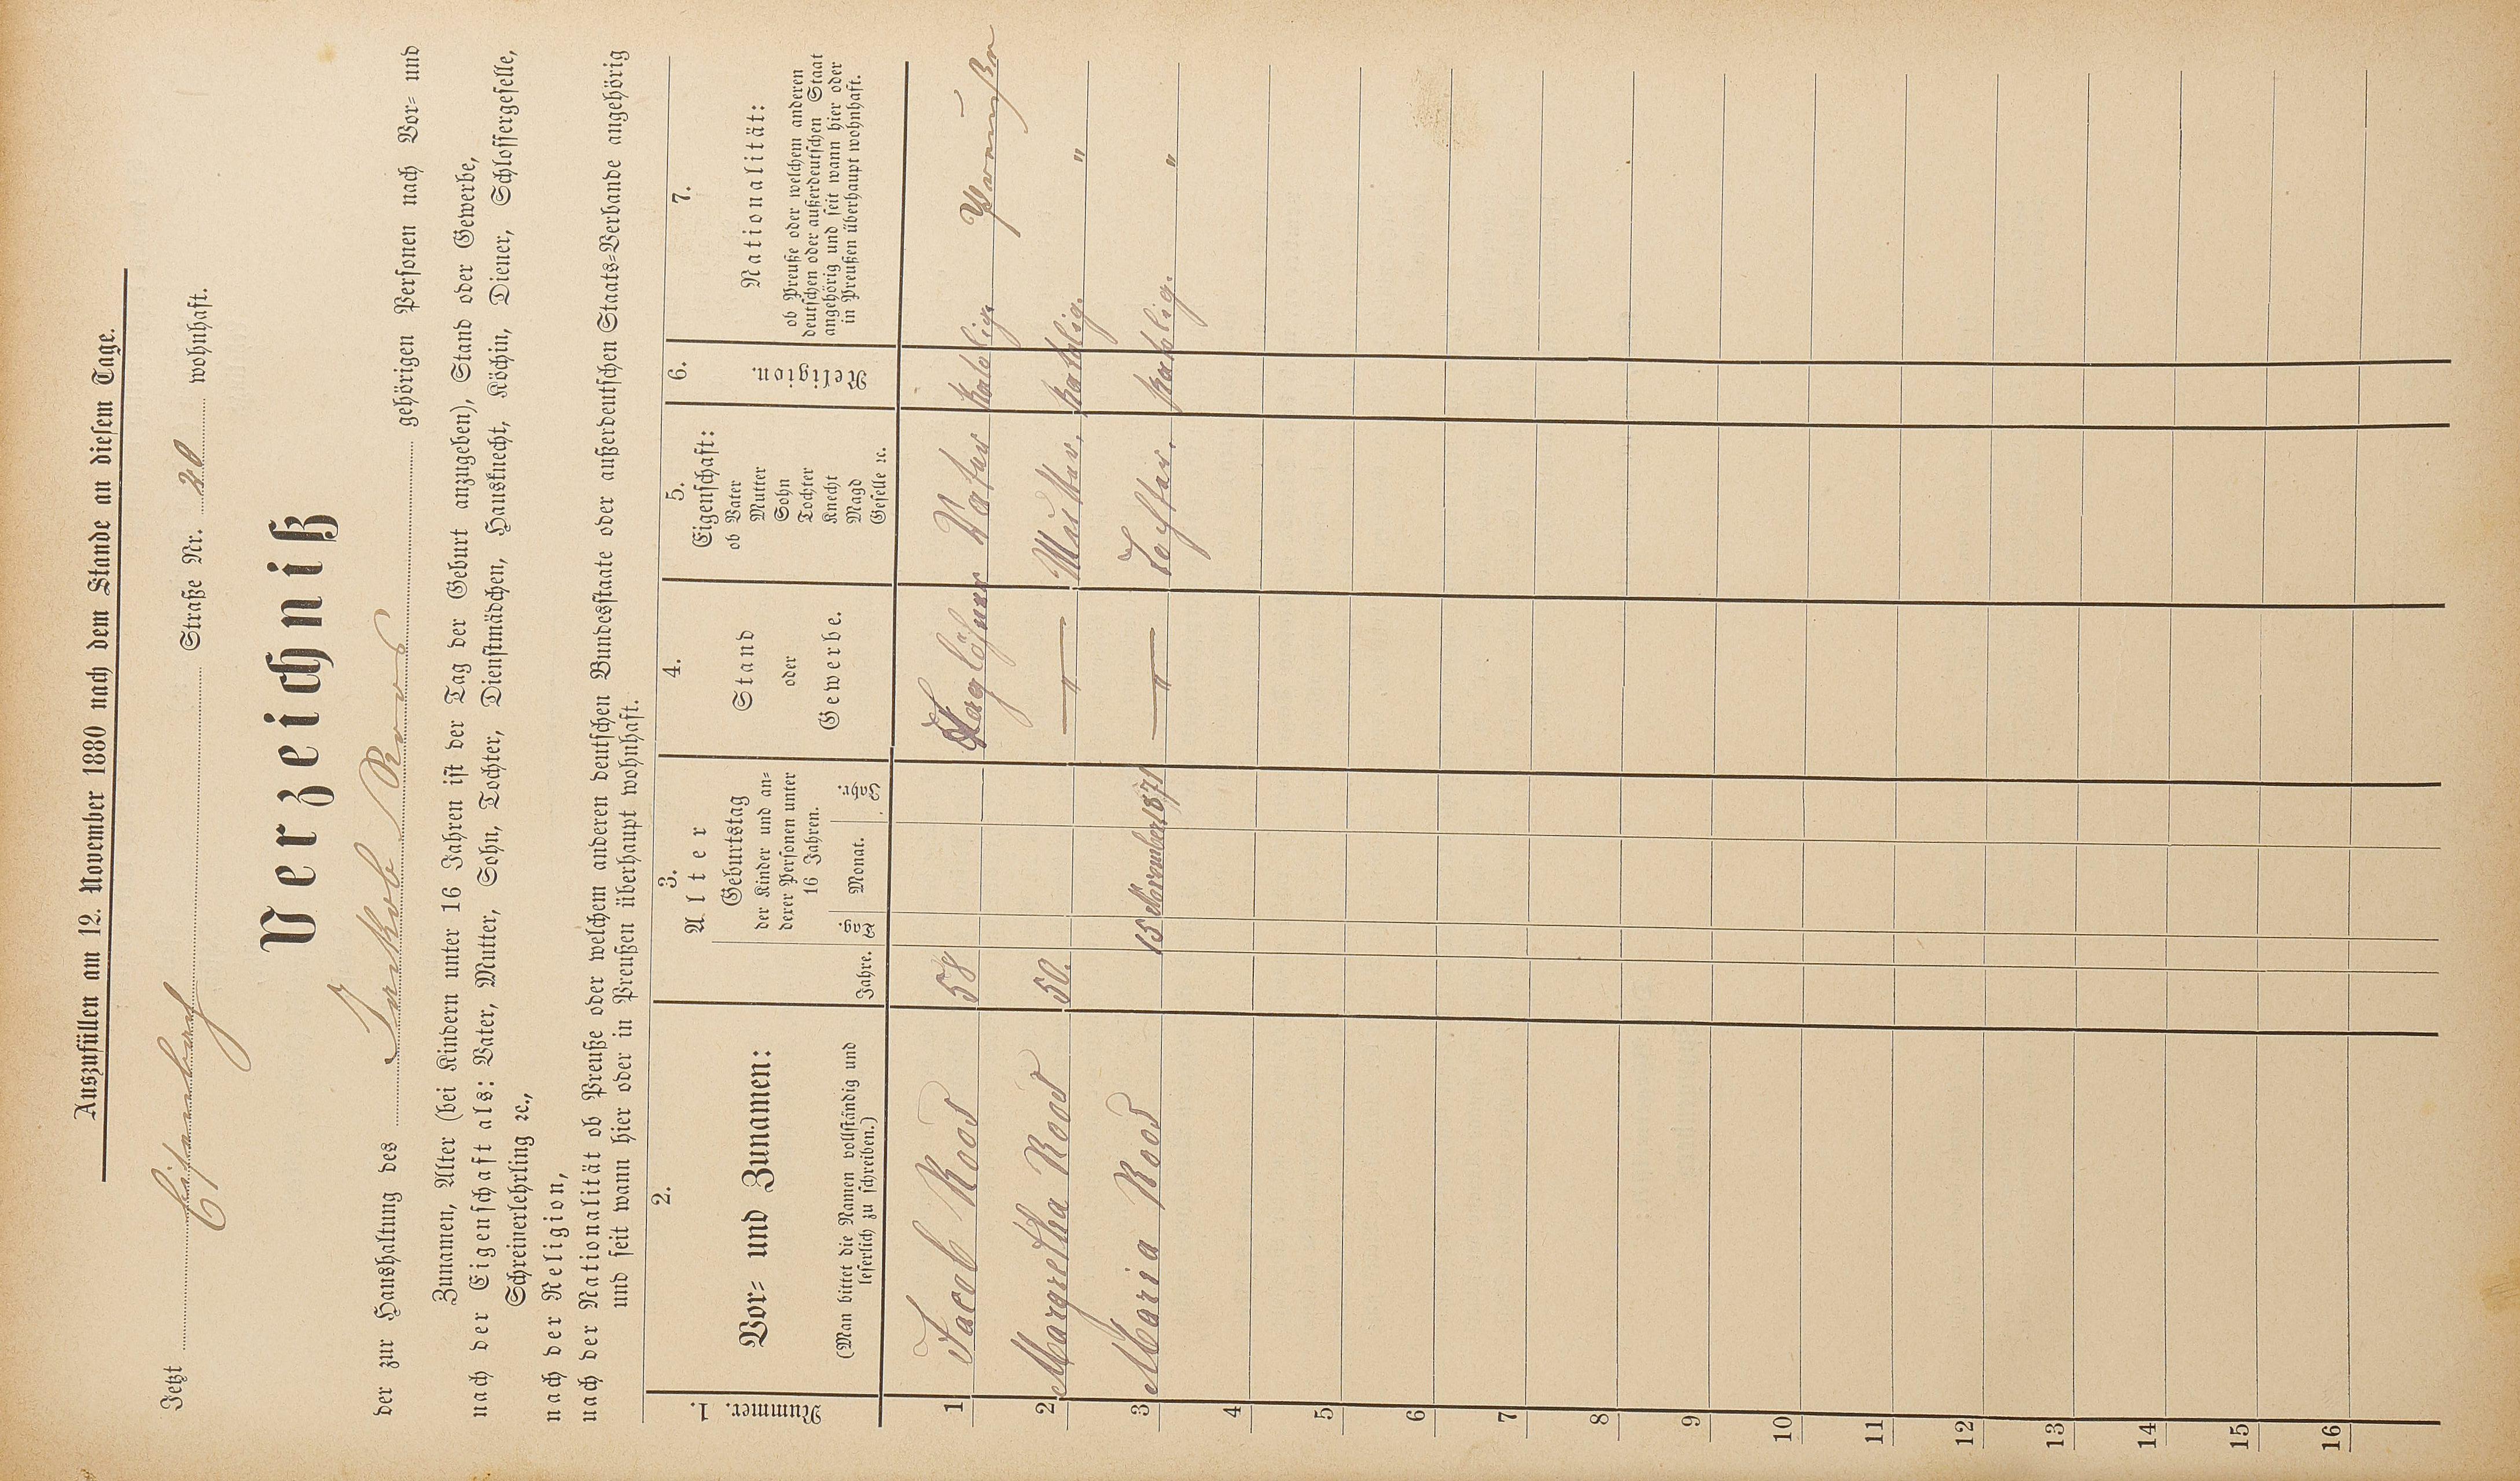 Auszufüllen am 12. November 1880 nach dem Stande an diesem Tage.
Jetzt Eisenberg Straße Nr. 20 wohnhaft.
Verzeichniß
der zur Haushaltung des Jakob Roos gehörigen Personen nach Vor- und
Zunamen, Alter (bei Kindern unter 16 Jahren ist der Tag der Geburt anzugeben), Stand oder Gewerbe,
nach der Eigenschaft als: Vater, Mutter, Sohn, Tochter, Dienstmädchen, Hausknecht, Köchin, Diener, Schlossergeselle,
Schreinerlehrling ꝛc.,
nach der Religion,
nach der Nationalität ob Preuße oder welchem anderen deutschen Bundesstaate oder außerdeutschen Staats-Verbande angehörig
und seit wann hier oder in Preußen überhaupt wohnhaft.
1. Nummer.
2. Vor- und Zunamen:
(Man bittet die Namen vollständig und
leserlich zu schreiben.)
3.
Alter
Jahre.
Geburtstag
der Kinder und an-
derer Personen unter
16 Jahren.
Tag. Monat. Jahr.
4.
Stand
oder
Gewerbe.
5.
Eigenschaft:
ob Vater
Mutter
Sohn
Tochter
Knecht
Magd
Geselle ꝛc.
6.
Religion.
7.
Nationalität:
ob Preuße oder welchem anderen
deutschen oder außerdeutschen Staat
angehörig und seit wann hier oder
in Preußen überhaupt wohnhaft.
1 Jacob Roos 58 Taglöhner Vater Katolig. Preuße
2 Margretha Roos 50. — " — Mutter. Katolig. "
3 Maria Roos 15 November 1871 — " — Tochter. Katolig. "
4
5
6
7
8
9
10
11
12
13
14
15
16